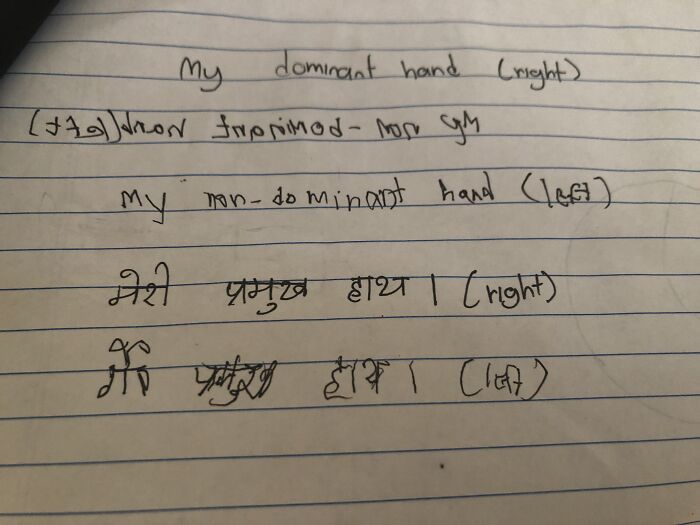 My dominant hand (right)
My non-dominant hand (left)
My non-dominant hand (left)
मेरी प्रमुख हाथ । (right)
प्रमुख हाथ । (left)